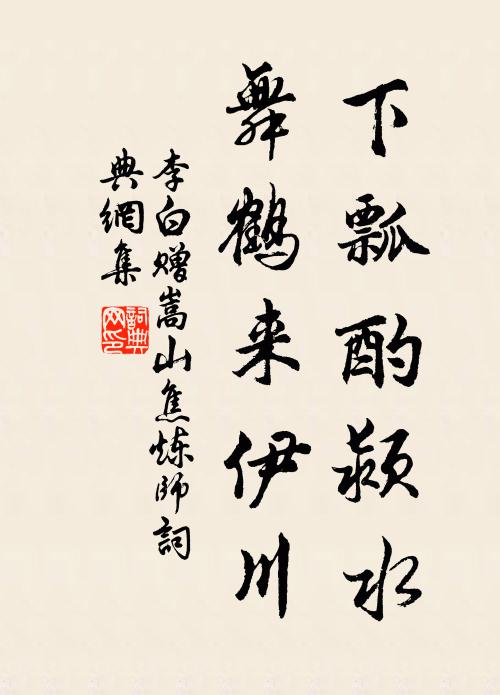 下瓢酌颍水
舞鹤来伊川
李白赠嵩山焦炼师詞
典網集
詞典网印